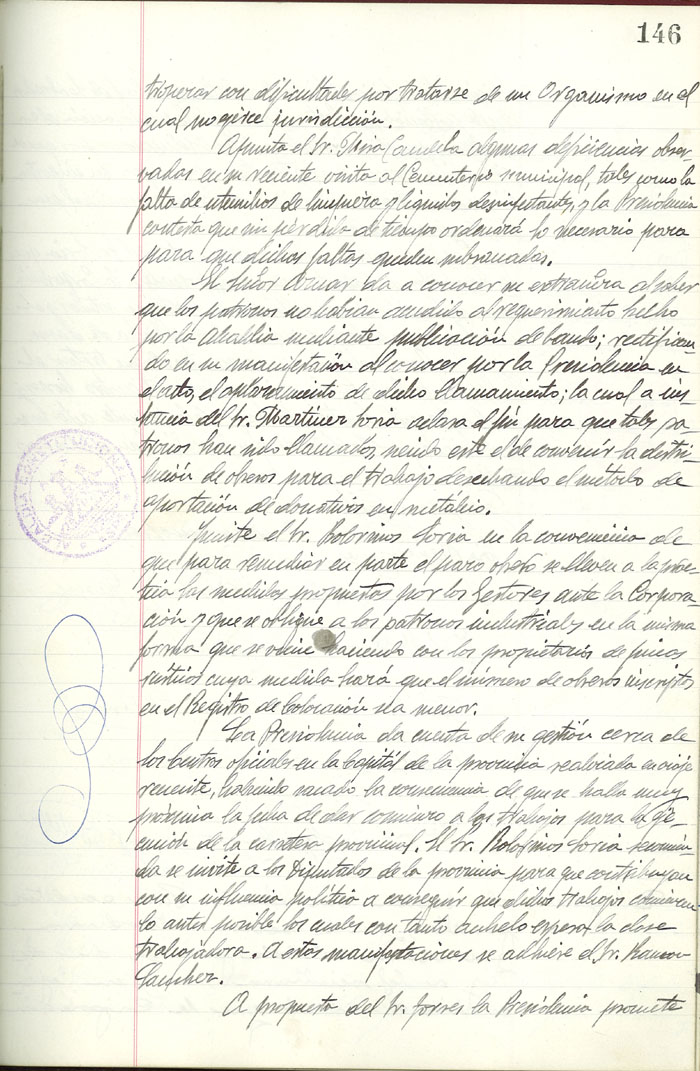 146
troperar con dificultades por tratarse de un Organismo en el
cual no ejerce jurisdicción.
Apunta el Sr. Mira Candela algunas deficiencias obser
vadas en su reciente visita al Cementerio municipal, tales como la
falta de utensilios de limpieza y líquidos desinfectantes, y la Presidencia
contesta que sin pérdida de tiempo ordenará lo necesario para
para que dichas faltas queden subsanadas.
El Señor Aznar da a conocer su extrañeza al saber
que los patronos no habian acudido al requerimiento hecho
por la Alcaldia mediante publicación de bando; rectifican-
do en su manifestación al conocer por la Presidencia en
el acto, el aplazamiento de dicho llamamiento; la cual a ins
tancia del Sr. Martinez Soria aclara el fin para que tales pa
tronos han sido llamados, siendo este el de convenir la distri
bución de obreros para el trabajo desechando el método de
aportación de donativos en metálico.
Insiste el Sr. Palomino Soria en la conveniencia de
que para remediar en parte el paro obrero se lleven a la prac
tica las medidas propuestas por los Gestores ante la Corpora
ción y que se obligue a los patronos industriales en la misma
forma que se viene haciendo con los propietarios de fincas
rusticas cuya medida hará que el número de obreros inscriptos
en el Registro de Colocación sea menor.
La Presidencia da cuenta de su gestión cerca de
los Centros oficiales en la Capital de la provincia realizada en viaje
reciente, habiendo sacado la consecuencia de que se halla muy
próxima la fecha de dar comienzo a los trabajos para la eje-
cución de la carretera provincial. El Sr. Soria
se invite a los Diputados de la provincia para que contribuyan
con su influencia politica a conseguir que dichos trabajos comiencen
lo antes posible los cuales con tanto anhelo espera la clase
trabajadora. A estas manifestaciones se adhiere el Sr. Ramon
Sanchez.
A propuesta del Sr. Torres la Presidencia promete